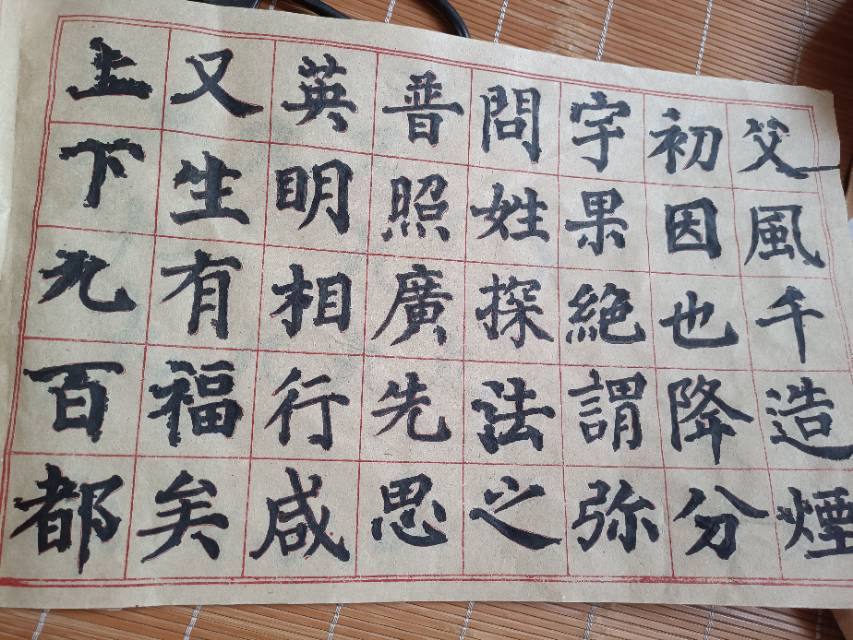 父風千造煙
初因也降分
宇果絶謂弥
問姓探法之
普照廣先思
英明相行咸
又生有福矣
上下九百都